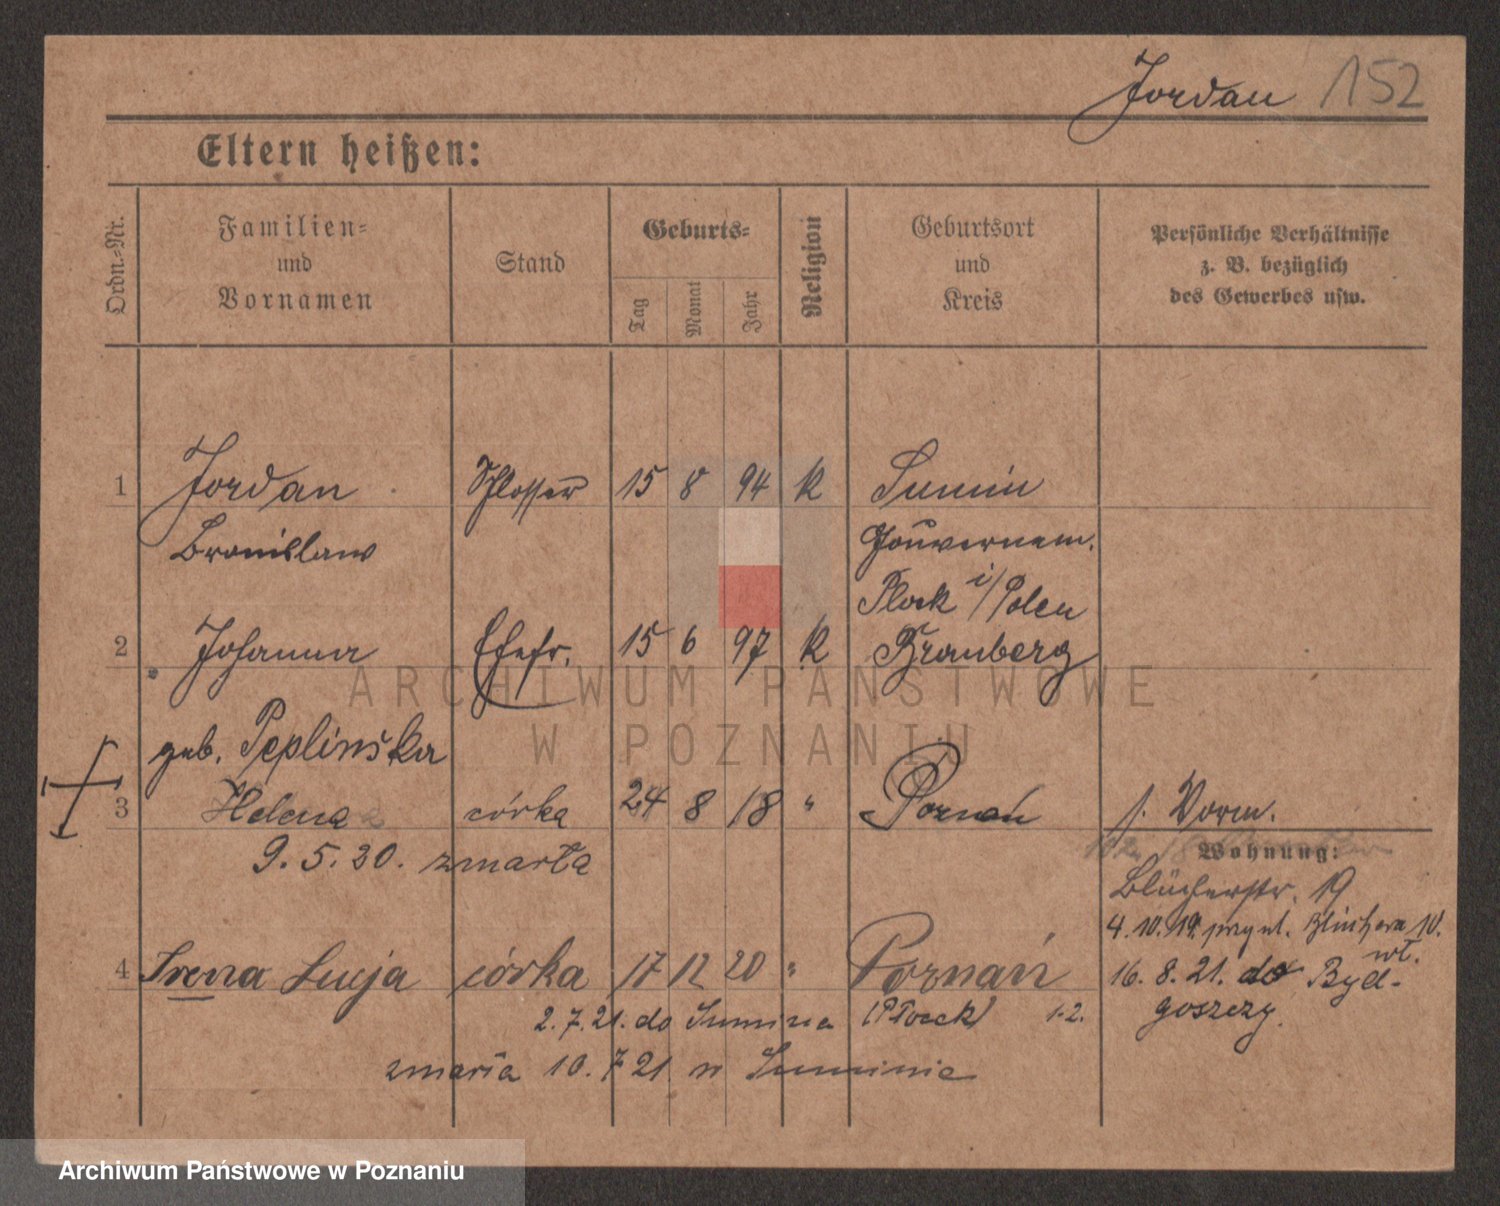 Jordan 152
Eltern heißen:
Ordn.-Nr.
Familien- und Vornamen
Stand
Geburts-
Tag
Monat
Jahr
Religion
Geburtsort und Kreis
Persönliche Verhältnisse z. B. bezüglich des Gewerbes usw.
1 Jordan Schlosser 15 8 94 K Sumin
Bronislaw Gouvernem.
Plock i/Polen
2 Johanna Ehefr. 15 6 97 K Bromberg
geb. Peplinska
3 Helena córka 24 8 18 " Poznań s. Vorm.
9. 5. 20. zmarła
Wohnung:
Blücherstr. 19
4. 10. 19. Blüchera 10.
wł.
4 Irena Lucja córka 17 12 20 " Poznań 16. 8. 21. do Byd-
goszczy.
2. 7. 21. do Sumina (Płock) 1.2.
zmarła 10. 7 21 w Suminie
ARCHIWUM PAŃSTWOWE
W POZNANIU
Archiwum Państwowe w Poznaniu